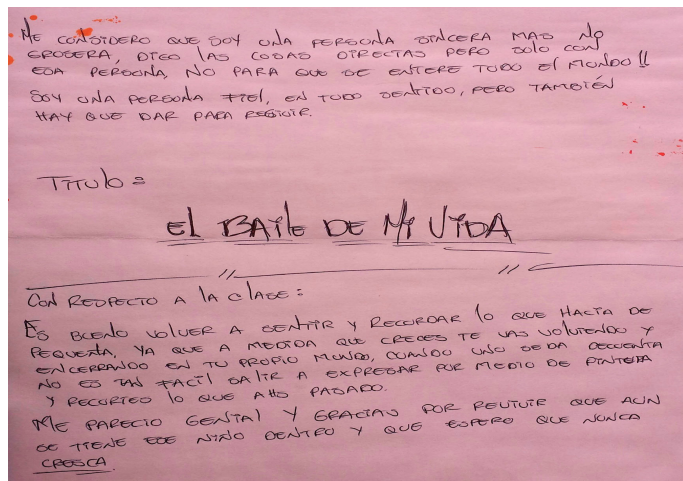 ME CONSIDERO QUE SOY UNA PERSONA SINCERA MAS NO
GROSERA, DIGO LAS COSAS DIRECTAS PERO SOLO CON
ESA PERSONA, NO PARA QUE SE ENTERE TODO El MUNDO!!
SOY UNA PERSONA FIEl, EN TODO SENTIDO, PERO TAMBIÉN
HAY QUE DAR PARA RECIBIR.
TITUlO =
El BAIlE DE MI VIDA
CON RESPECTO A lA ClASE =
ES BUENO VOlVER A SENTIR Y RECORDAR lO QUE HACIA DE
PEQUEÑA, YA QUE A MEDIDA QUE CRECES TE VAS VOlVIENDO Y
ENCERRANDO EN TU PROPIO MUNDO, CUANDO UNO SE DA DECUENTA
NO ES TAN FACIl SAlIR A EXPRESAR POR MEDIO DE PINTURA
Y RECORTES lO QUE AHS PASADO.
ME PARECIO GENIAl Y GRACIAS POR REVIVIR QUE AUN
SE TIENE ESE NIÑO DENTRO Y QUE ESPERO QUE NUNCA
CRESCA.